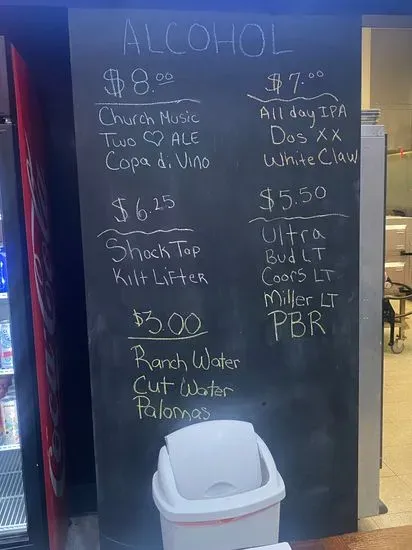 ALCOHOL
$8.00
Church Music
Two ♡ ALE
Copa di Vino
$7.00
All day IPA
Dos XX
White Claw
$6.25
Shock Top
Kilt Lifter
$5.50
Ultra
Bud LT
Coors LT
Miller LT
PBR
$3.00
Ranch Water
Cut Water
Palomas
Coca-Cola